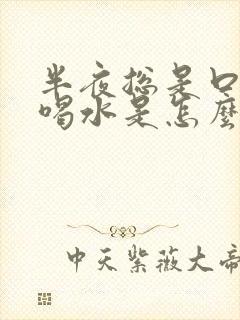 半夜总是口
喝水是怎麼
中天紫薇大帝